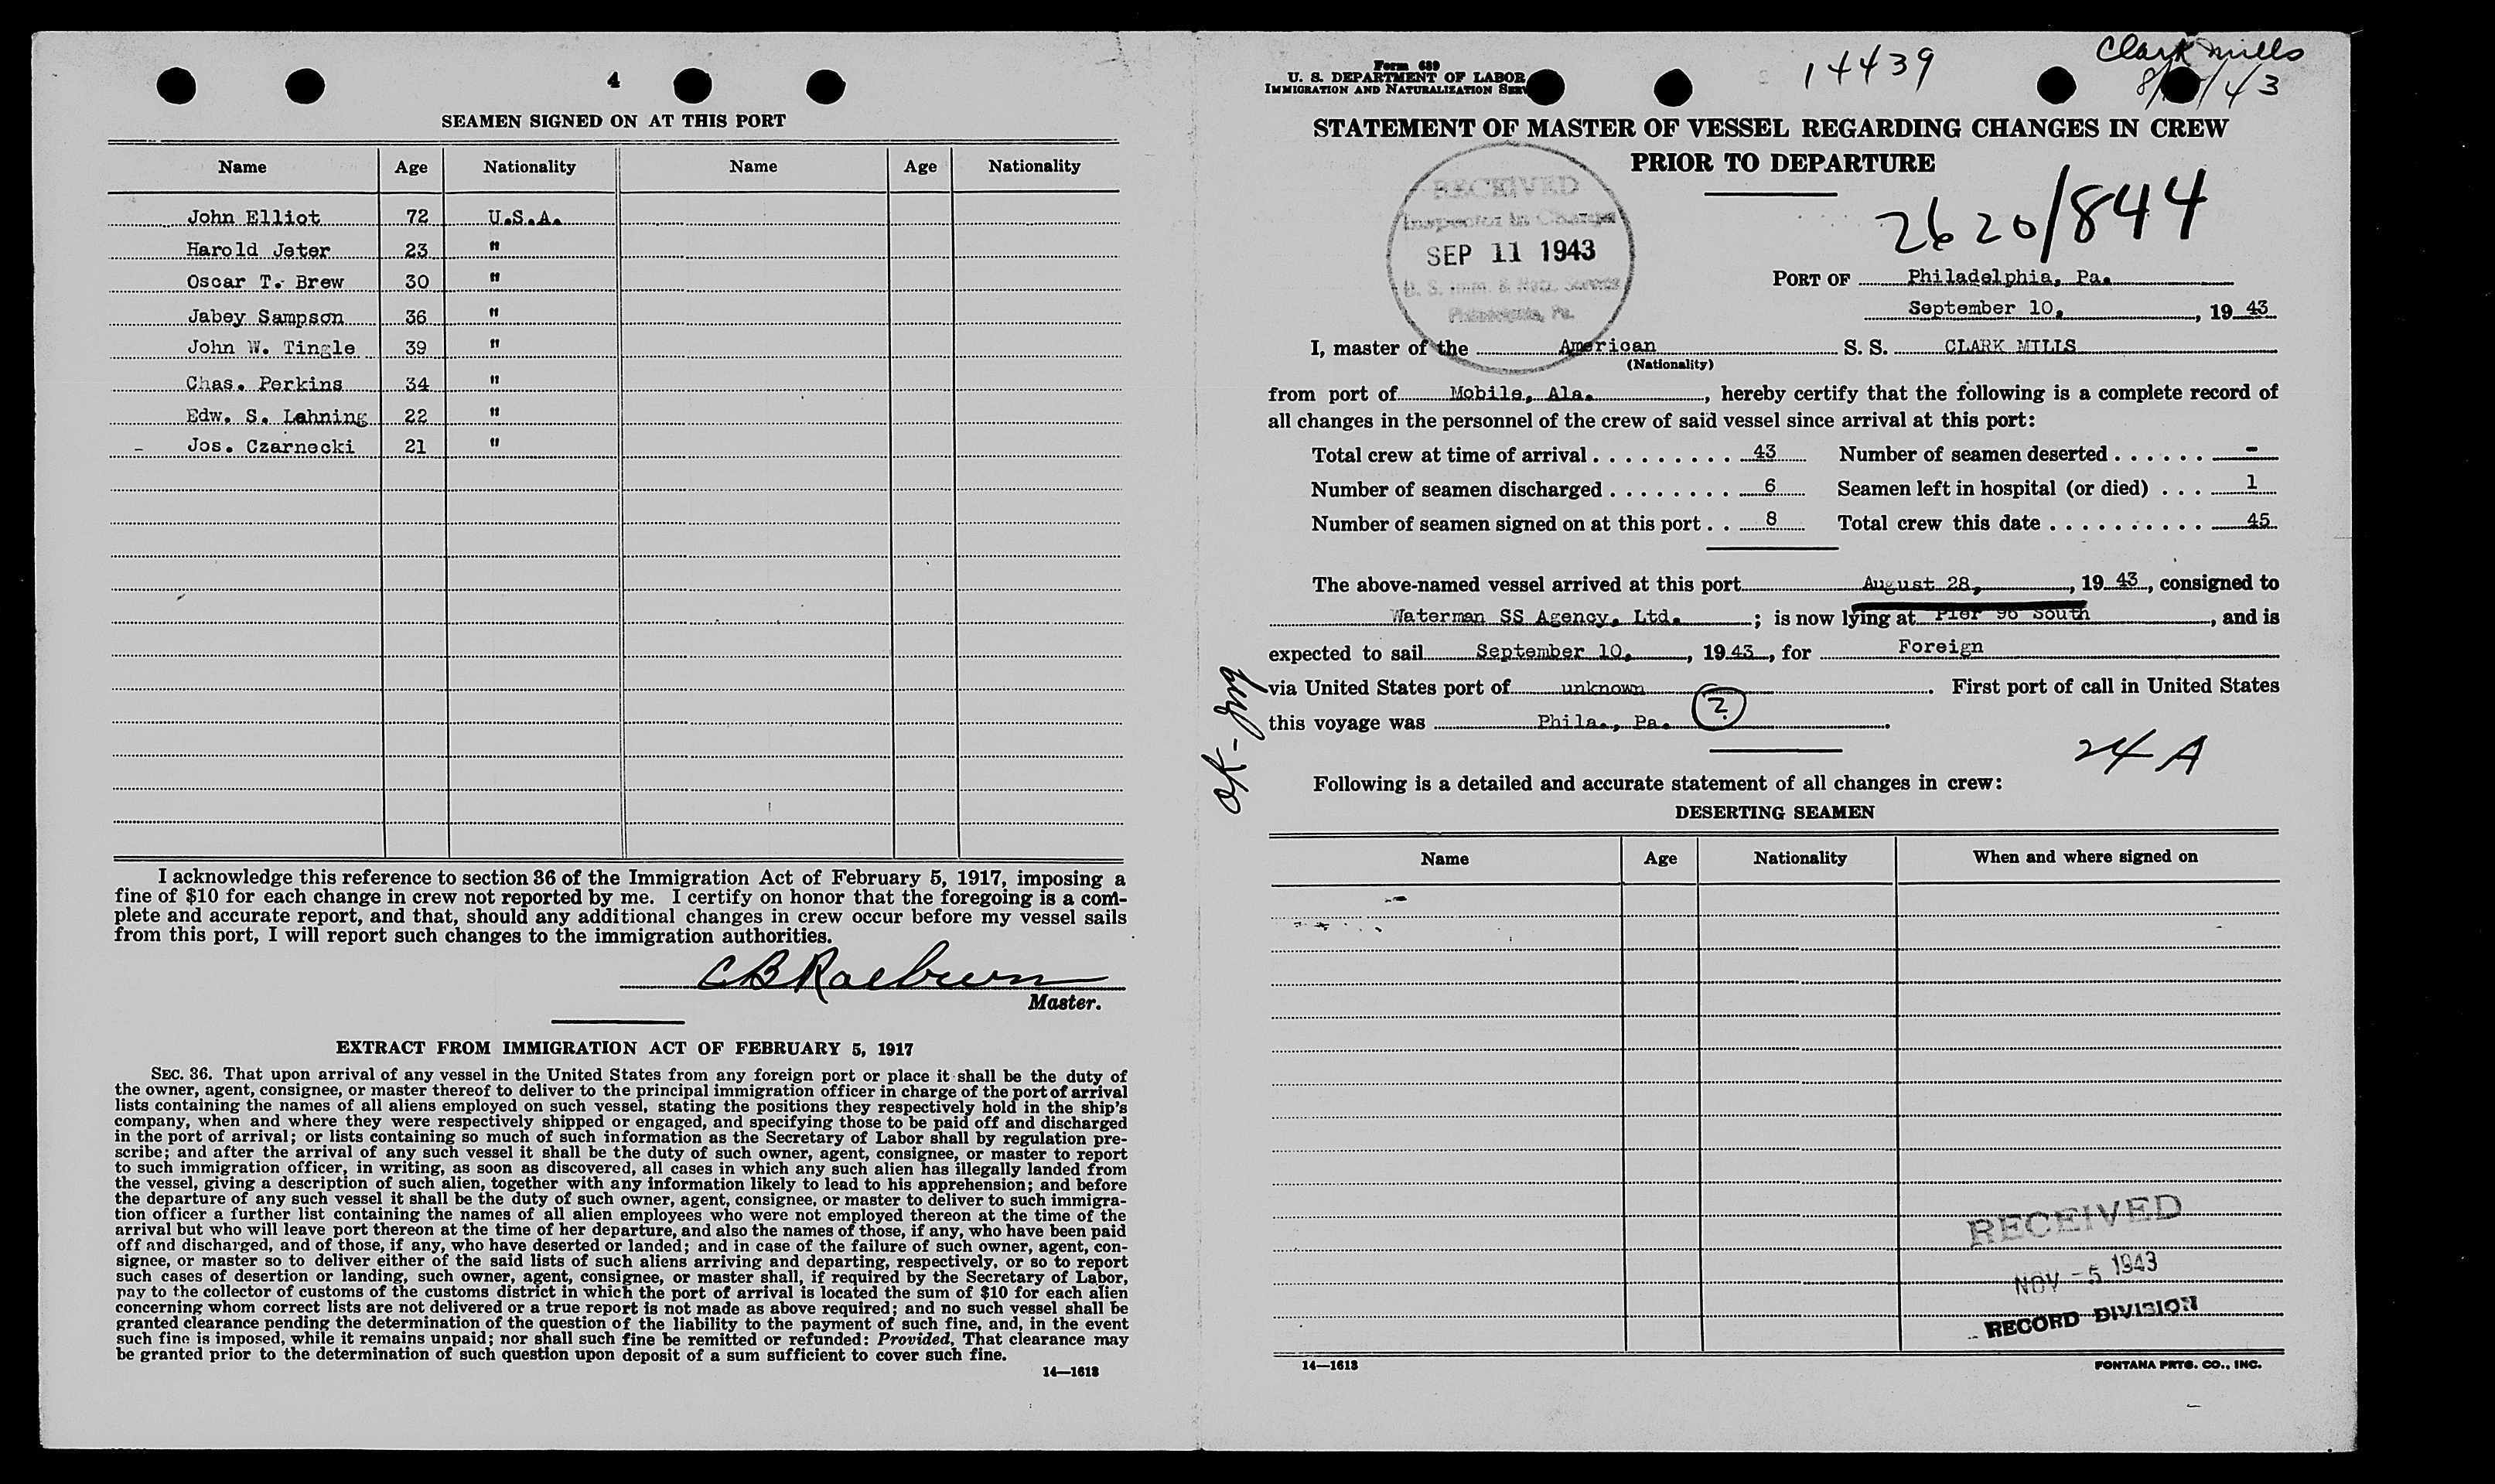 4
SEAMEN SIGNED ON AT THIS PORT
Name Age Nationality Name Age Nationality
John Elliot 72 U.S.A.
Harold Jeter 23 "
Oscar T. Brew 30 "
Jabey Sampson 36 "
John W. Tingle 39 "
Chas. Perkins 34 "
Edw. S. Lahning 22 "
- Jos. Czarnecki 21 "
I acknowledge this reference to section 36 of the Immigration Act of February 5, 1917, imposing a
fine of $10 for each change in crew not reported by me. I certify on honor that the foregoing is a com-
plete and accurate report, and that, should any additional changes in crew occur before my vessel sails
from this port, I will report such changes to the immigration authorities.
C B Raeburn
Master.
EXTRACT FROM IMMIGRATION ACT OF FEBRUARY 5, 1917
SEC. 36. That upon arrival of any vessel in the United States from any foreign port or place it shall be the duty of
the owner, agent, consignee, or master thereof to deliver to the principal immigration officer in charge of the port of arrival
lists containing the names of all aliens employed on such vessel, stating the positions they respectively hold in the ship's
company, when and where they were respectively shipped or engaged, and specifying those to be paid off and discharged
in the port of arrival; or lists containing so much of such information as the Secretary of Labor shall by regulation pre-
scribe; and after the arrival of any such vessel it shall be the duty of such owner, agent, consignee, or master to report
to such immigration officer, in writing, as soon as discovered, all cases in which any such alien has illegally landed from
the vessel, giving a description of such alien, together with any information likely to lead to his apprehension; and before
the departure of any such vessel it shall be the duty of such owner, agent, consignee, or master to deliver to such immigra-
tion officer a further list containing the names of all alien employees who were not employed thereon at the time of the
arrival but who will leave port thereon at the time of her departure, and also the names of those, if any, who have been paid
off and discharged, and of those, if any, who have deserted or landed; and in case of the failure of such owner, agent, con-
signee, or master so to deliver either of the said lists of such aliens arriving and departing, respectively, or so to report
such cases of desertion or landing, such owner, agent, consignee, or master shall, if required by the Secretary of Labor,
pay to the collector of customs of the customs district in which the port of arrival is located the sum of $10 for each alien
concerning whom correct lists are not delivered or a true report is not made as above required; and no such vessel shall be
granted clearance pending the determination of the question of the liability to the payment of such fine, and, in the event
such fine is imposed, while it remains unpaid; nor shall such fine be remitted or refunded: Provided, That clearance may
be granted prior to the determination of such question upon deposit of a sum sufficient to cover such fine.
14—1613
Form 689
U. S. DEPARTMENT OF LABOR
IMMIGRATION AND NATURALIZATION
14439
Clark Mills
STATEMENT OF MASTER OF VESSEL REGARDING CHANGES IN CREW
PRIOR TO DEPARTURE
RECEIVED
Inspector in Charge
SEP 11 1943
U. S. Imm. & Natz. Service
Philadelphia, Pa.
2620/844
PORT OF Philadelphia, Pa.
September 10, , 19 43
I, master of the American S. S. CLARK MILLS
(Nationality)
from port of Mobile, Ala. , hereby certify that the following is a complete record of
all changes in the personnel of the crew of said vessel since arrival at this port:
Total crew at time of arrival . . . . . . . . . . 43 Number of seamen deserted . . . . . . -
Number of seamen discharged . . . . . . . . 6 Seamen left in hospital (or died) . . . 1
Number of seamen signed on at this port . . 8 Total crew this date . . . . . . . . . . 45
The above-named vessel arrived at this port August 28, , 19 43, consigned to
Waterman SS Agency, Ltd. ; is now lying at Pier 96 South , and is
expected to sail September 10, , 19 43, for Foreign
via United States port of unknown . First port of call in United States
this voyage was Phila., Pa. ? .
OK-
24 A
Following is a detailed and accurate statement of all changes in crew:
DESERTING SEAMEN
Name Age Nationality When and where signed on
RECEIVED
NOV - 5 1943
RECORD DIVISION
14—1613 FONTANA PRTG. CO., INC.